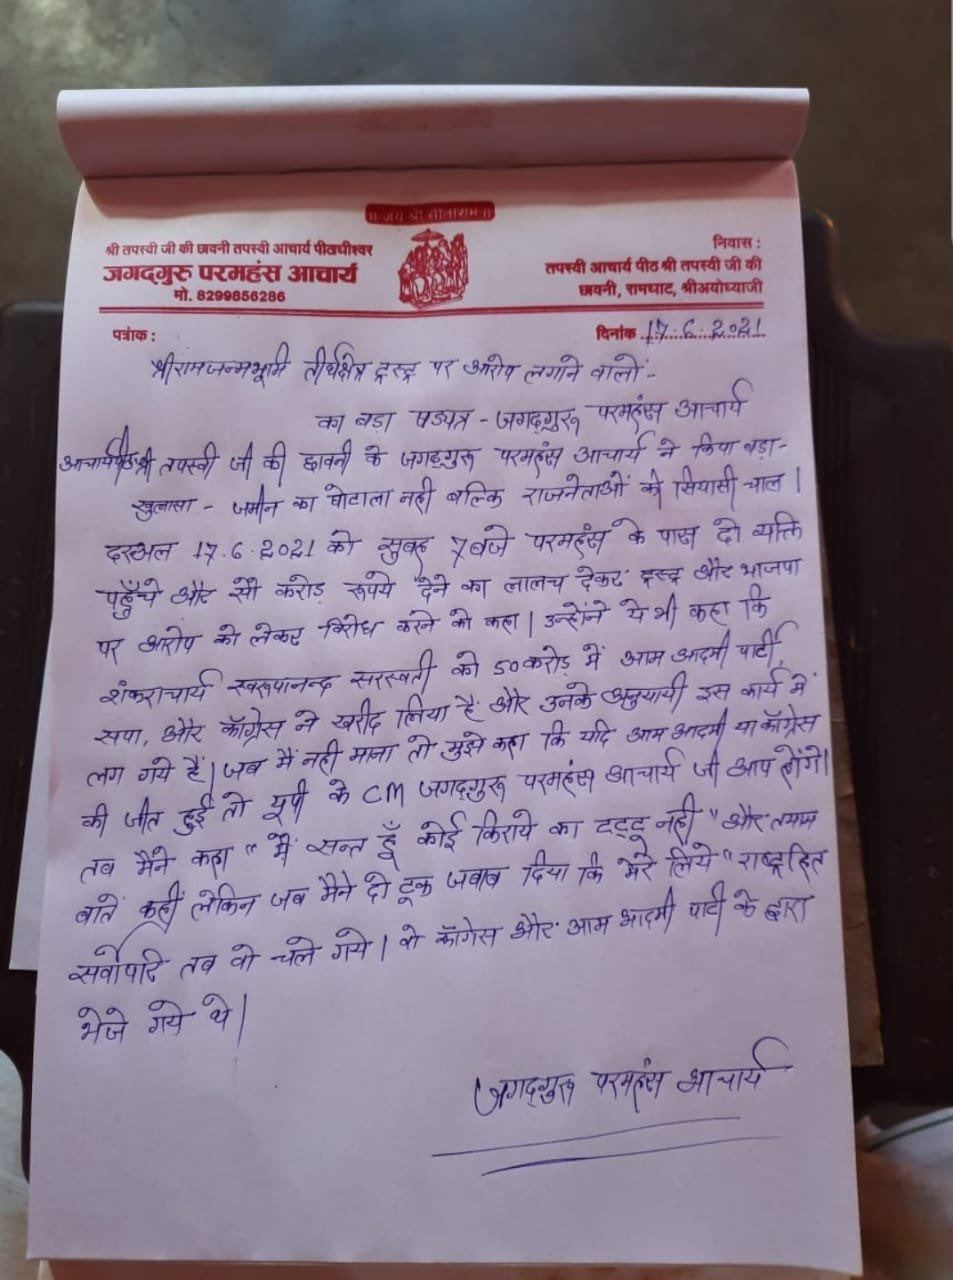 ॥ जय श्री सीताराम ॥
श्री तपस्वी जी की छावनी तपस्वी आचार्य पीठाधीश्वर
जगद्गुरु परमहंस आचार्य
मो. 8299856286
निवास :
तपस्वी आचार्य पीठ श्री तपस्वी जी की
छावनी, रामघाट, श्रीअयोध्याजी
पत्रांक :
दिनांक 17.6.2021
श्रीरामजन्मभूमि तीर्थक्षेत्र ट्रस्ट पर आरोप लगाने वालों -
का बड़ा षड्यत्र - जगद्गुरू परमहंस आचार्य
आचार्यपीठ श्री तपस्वी जी की छावनी के जगद्गुरू परमहंस आचार्य ने किया बड़ा -
खुलासा - जमीन का घोटाला नही बल्कि राजनेताओं की सियासी चाल।
दरअल 17.6.2021 को सुबह 7 बजे परमहंस के पास दो व्यक्ति
पहुँचे और सौ करोड़ रूपये देने का लालच देकर ट्रस्ट और भाजपा
पर आरोप को लेकर विरोध करने को कहा। उन्होंने ये भी कहा कि
शंकराचार्य स्वरूपानन्द सरस्वती को 50 करोड़ में आम आदमी पार्टी,
सपा, और कॉग्रेस ने खरीद लिया है और उनके अनुयायी इस कार्य में
लग गये है। जब मैं नही माना तो मुझे कहा कि यदि आम आदमी या कॉग्रेस
की जीत हुई तो यूपी के CM जगद्गुरू परमहंस आचार्य जी आप होंगे।
तब मैने कहा "मैं सन्त हूँ कोई किराये का टट्टू नही" और तमाम
बातें कहीं लेकिन जब मैने दो टूक जवाब दिया कि मेरे लिये "राष्ट्रहित
सर्वोपरि तब वो चले गये। वो कॉग्रेस और आम आदमी पार्टी के द्वारा
भेजे गये थे।
जगद्गुरू परमहंस आचार्य